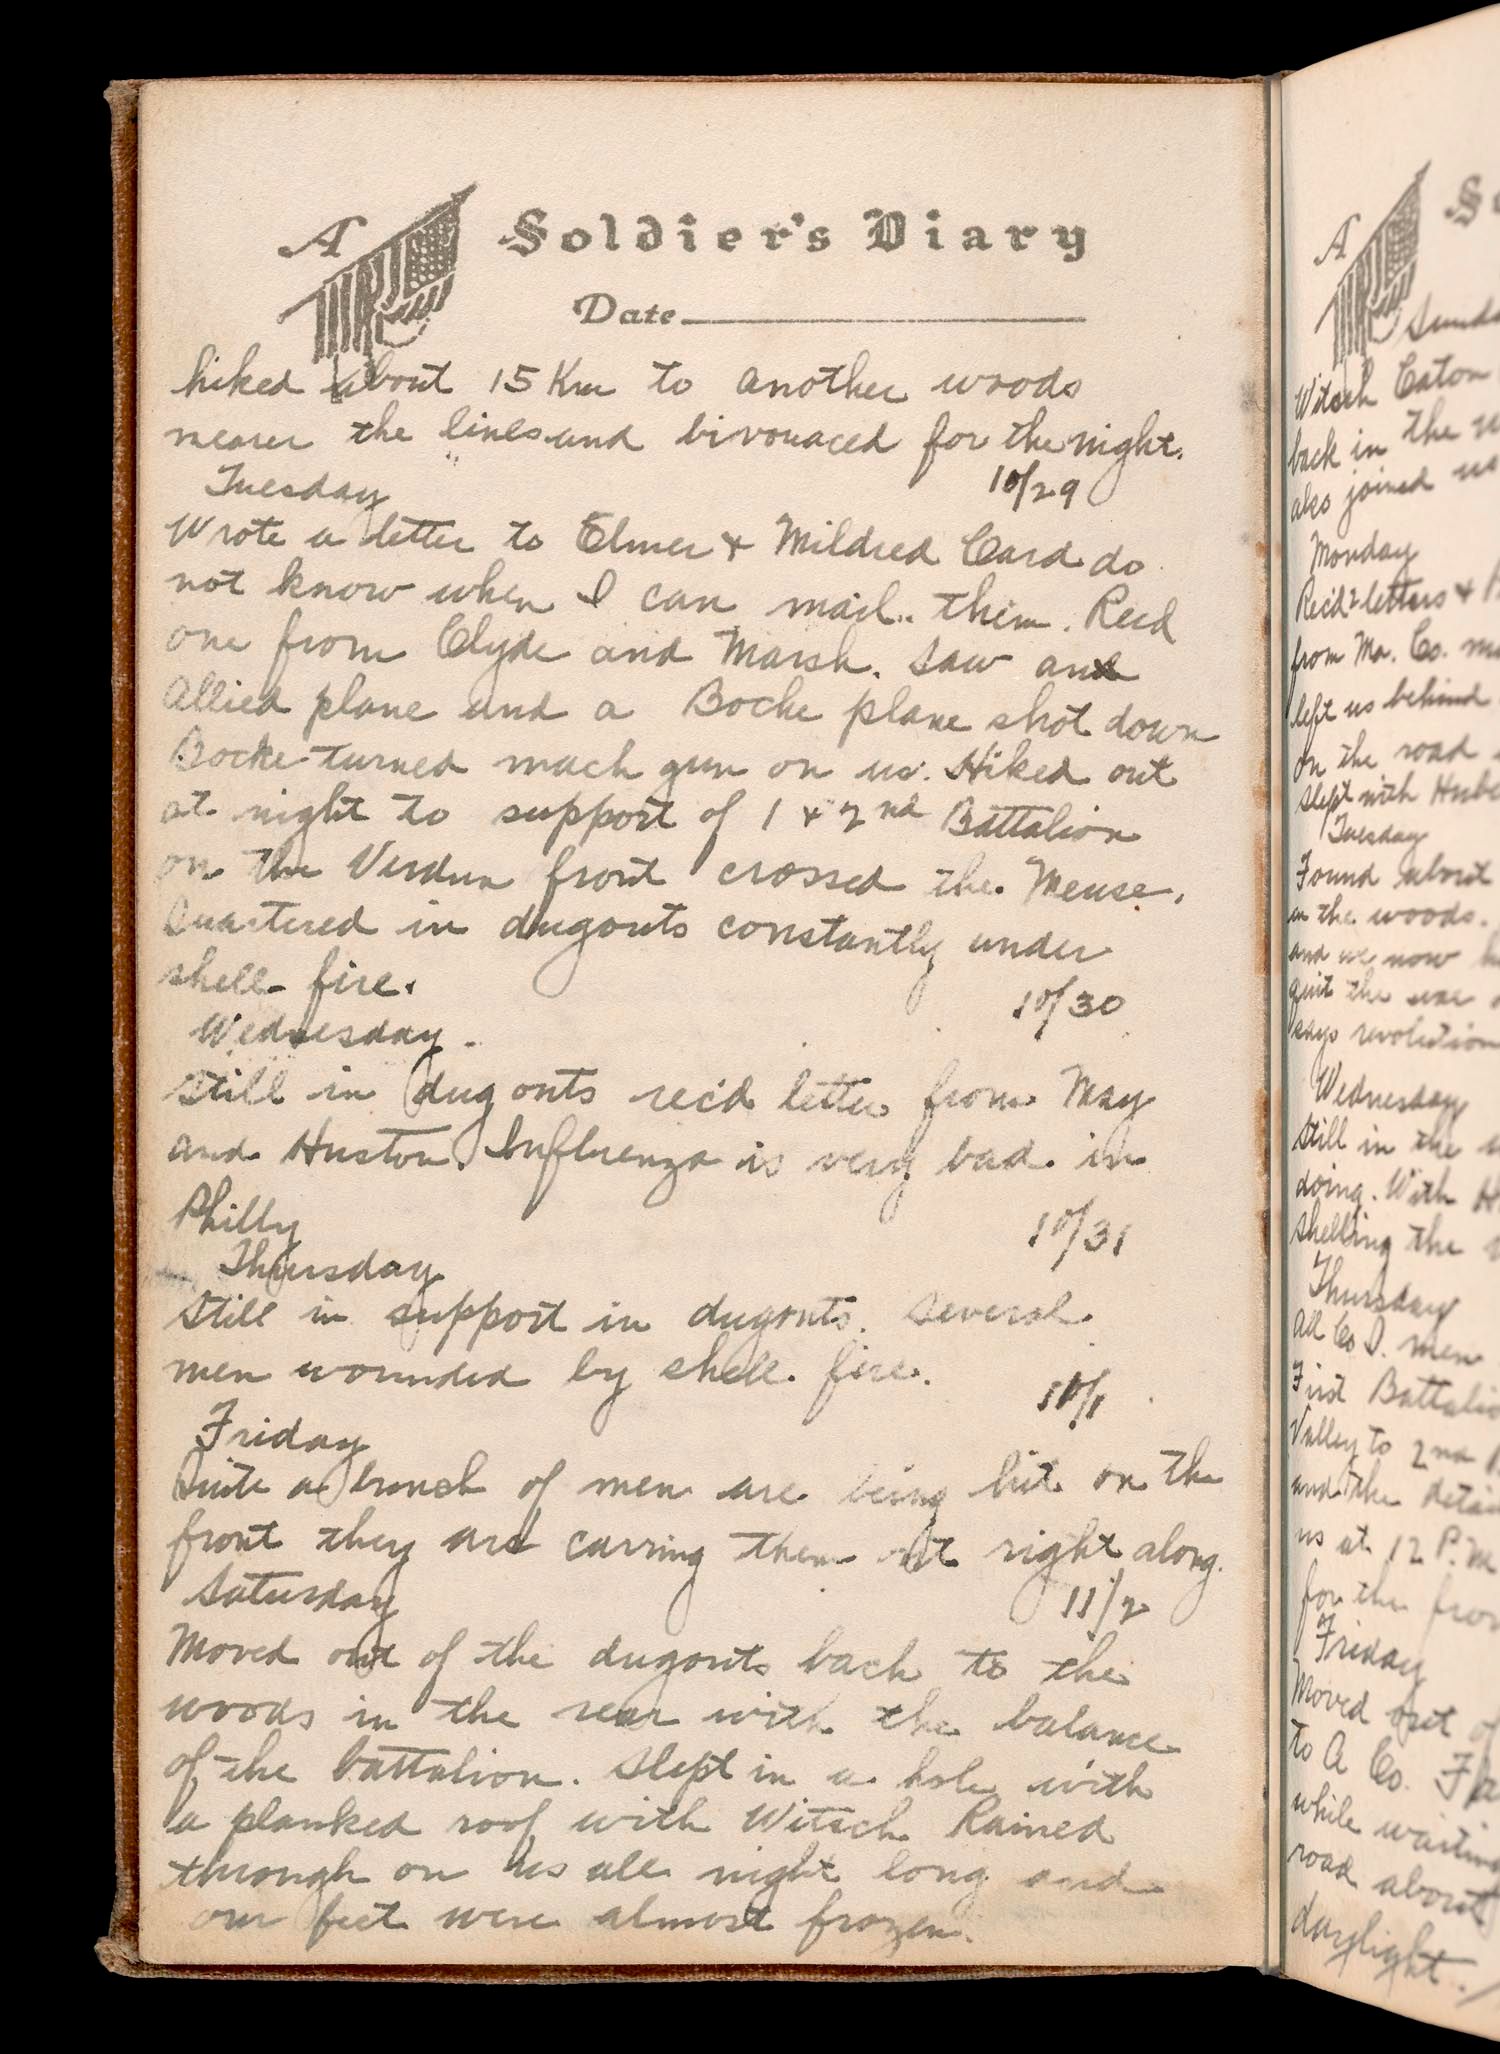 A Soldier's Diary
Date
hiked about 15 Km to another woods
nearer the lines and bivouaced for the night.
Tuesday 10/29
Wrote a letter to Elmer & Mildred Card do
not know when I can mail them. Recd
one from Clyde and Marsh. Saw an
Allied plane and a Boche plane shot down
Boche turned mach gun on us. Hiked out
at night to support of 1 & 2nd Battalion
on the Verdun front crossed the Meuse.
Quartered in dugouts constantly under
shell fire.
Wednesday. 10/30
Still in dugouts rec'd letter from May
and Huston. Influenza is very bad in
Philly
Thursday 10/31
Still in support in dugouts. Several
men wounded by shell fire.
Friday 10/1
Quite a bunch of men are being hit on the
front they are carring them out right along.
Saturday 11/2
Moved out of the dugouts back to the
woods in the rear with the balance
of the battalion. Slept in a hole with
a planked roof with Witsch Rained
through on us all night long and
our feet were almost frozen.
A
Witsch Eaton
back in the
also joined us
Monday
Rec'd 2 letters &
from Ma. Co.
left us behind
on the road
slept with
Tuesday
Found about
in the woods.
and we now
quit the
says revolution
Wednesday
Still in the
doing. With
shelling the
Thursday
All Co I. men
First Battalion
Valley to 2nd
and the
us at 12 P.M
for the
Friday
Moved out of
to A Co.
while waiting
road about
daylight.